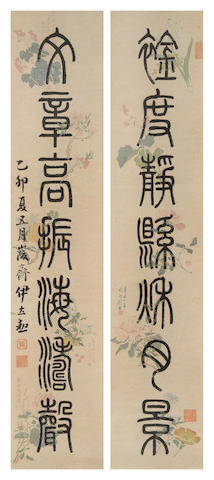 襟度靜縣秋月景
文章高振海濤聲
乙卯夏五月峻齋伊立勳